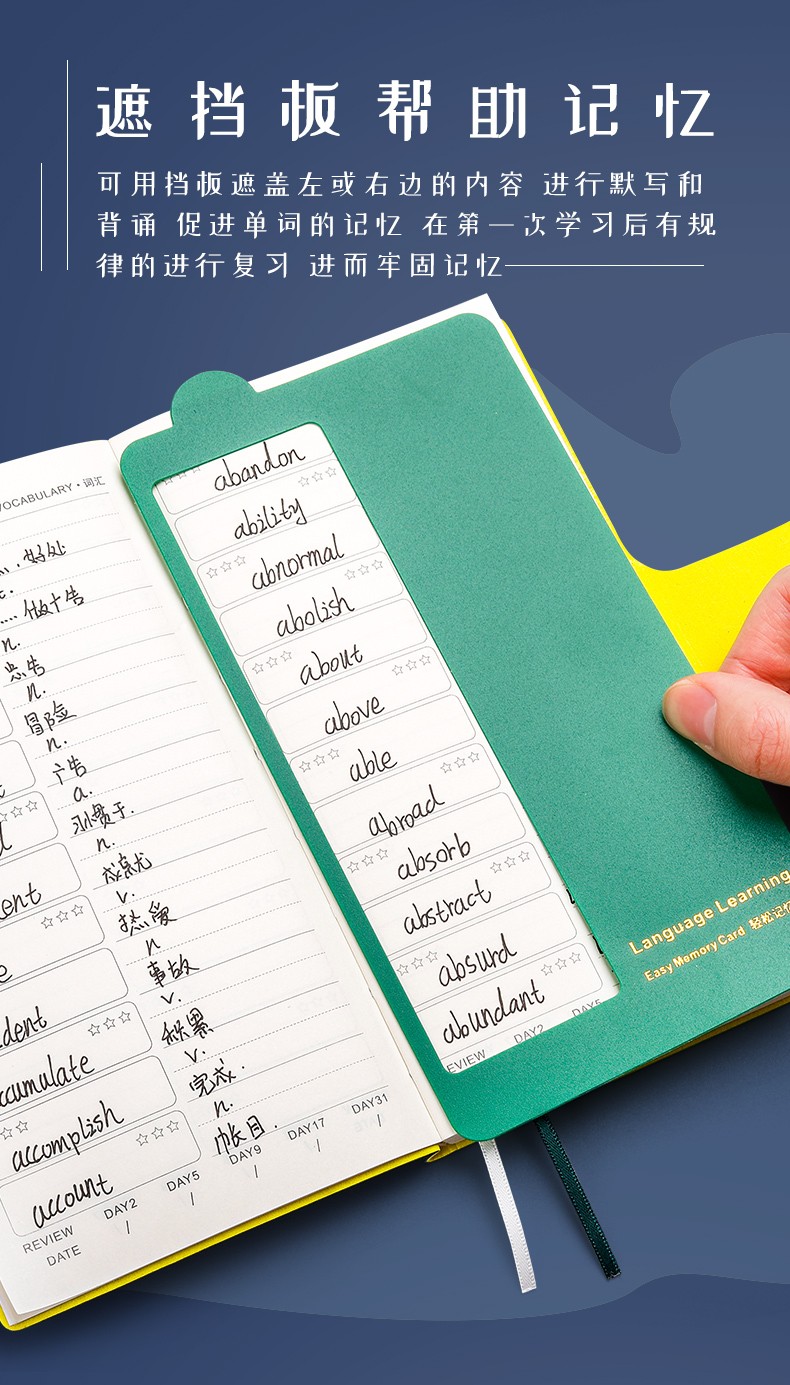 遮挡板帮助记忆
可用挡板遮盖左或右边的内容 进行默写和
背诵 促进单词的记忆 在第一次学习后有规
律的进行复习 进而牢固记忆
VOCABULARY·词汇
好处
做广告
n.
忠告
n.
冒险
n.
广告
a.
习惯于.
n.
成就
v.
热爱
n
事故
v.
积累
v.
完成.
n.
帐目.
accomplish
account
REVIEW DATE
DAY2
DAY5
DAY9
DAY17
DAY31
/
/
/
/
/
abandon
ability
abnormal
abolish
about
above
able
abroad
absorb
abstract
absurd
abundant
DAY2
DAY5
Language Learning
Easy Memory Card 轻松记忆